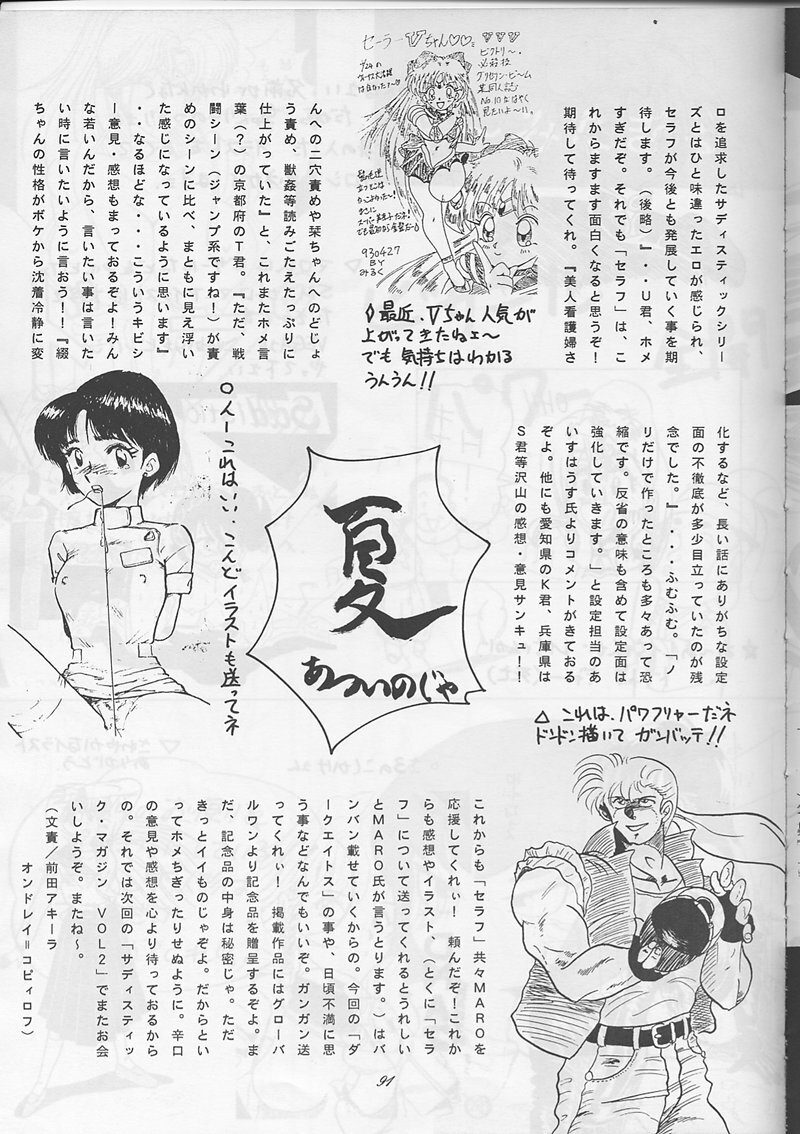 ロを追求したサディスティックシリー
ズとはひと味違ったエロが感じられ、
セラフが今後とも発展していく事を期
待します。(後略)』・・U君、ホメ
すぎだぞ。それでも「セラフ」は、こ
れからますます面白くなると思うぞ!
期待して待ってくれ。『美人看護婦さ
セーラーVちゃん♡♡
ビクトリー・
必殺技
930427
BY
みるく
◊最近、Vちゃん人気が
上がってきたねェ〜
でも気持ちはわかる
うんうん!!
んへの二穴責めや栞ちゃんへのどじょ
う責め、獣姦等読みごたえたっぷりに
仕上がっていた』と、これまたホメ言
葉(?)の京都府のT君。『ただ、戦
闘シーン(ジャンプ系ですね!)が責
めのシーンに比べ、まともに見え浮い
た感じになっているように思います』
・・なるほどな・・・こういうキビシ
ー意見・感想もまっておるぞよ!みん
な若いんだから、言いたい事は言いた
い時に言いたいように言おう!!『綴
ちゃんの性格がボケから沈着冷静に変
化するなど、長い話にありがちな設定
面の不徹底が多少目立っていたのが残
念でした。』・・・ふむふむ。「ノ
リだけで作ったところも多々あって恐
縮です。反省の意味も含めて設定面は
強化していきます。」と設定担当のあ
いすはうす氏よりコメントがきておる
ぞよ。他にも愛知県のK君、兵庫県は
S君等沢山の感想・意見サンキュ!!
夏
あついのじゃ
○人ーこれはいい、こんどイラストも送ってネ
△ これは、パワフリャーだネ
ドンドン描いて ガンバッテ!!
これからも「セラフ」共々MAROを
応援してくれぃ! 頼んだぞ!これか
らも感想やイラスト、(とくに「セラ
フ」について送ってくれるとうれしい
とMARO氏が言うとります。)はバ
ンバン載せていくからの。今回の「ダ
ークエイトス」の事や、日頃不満に思
う事などなんでもいいぞ。ガンガン送
ってくれぃ! 掲載作品にはグローバ
ルワンより記念品を贈呈するぞよ。ま
だ、記念品の中身は秘密じゃ。ただ
きっとイイものじゃぞよ。だからとい
ってホメちぎったりせぬように。辛口
の意見や感想を心より待っておるから
の。それでは次回の「サディスティッ
ク・マガジン VOL2」でまたお会
いしようぞ。またね〜。
(文責/前田アキーラ
オンドレイ=コピィロフ)
91